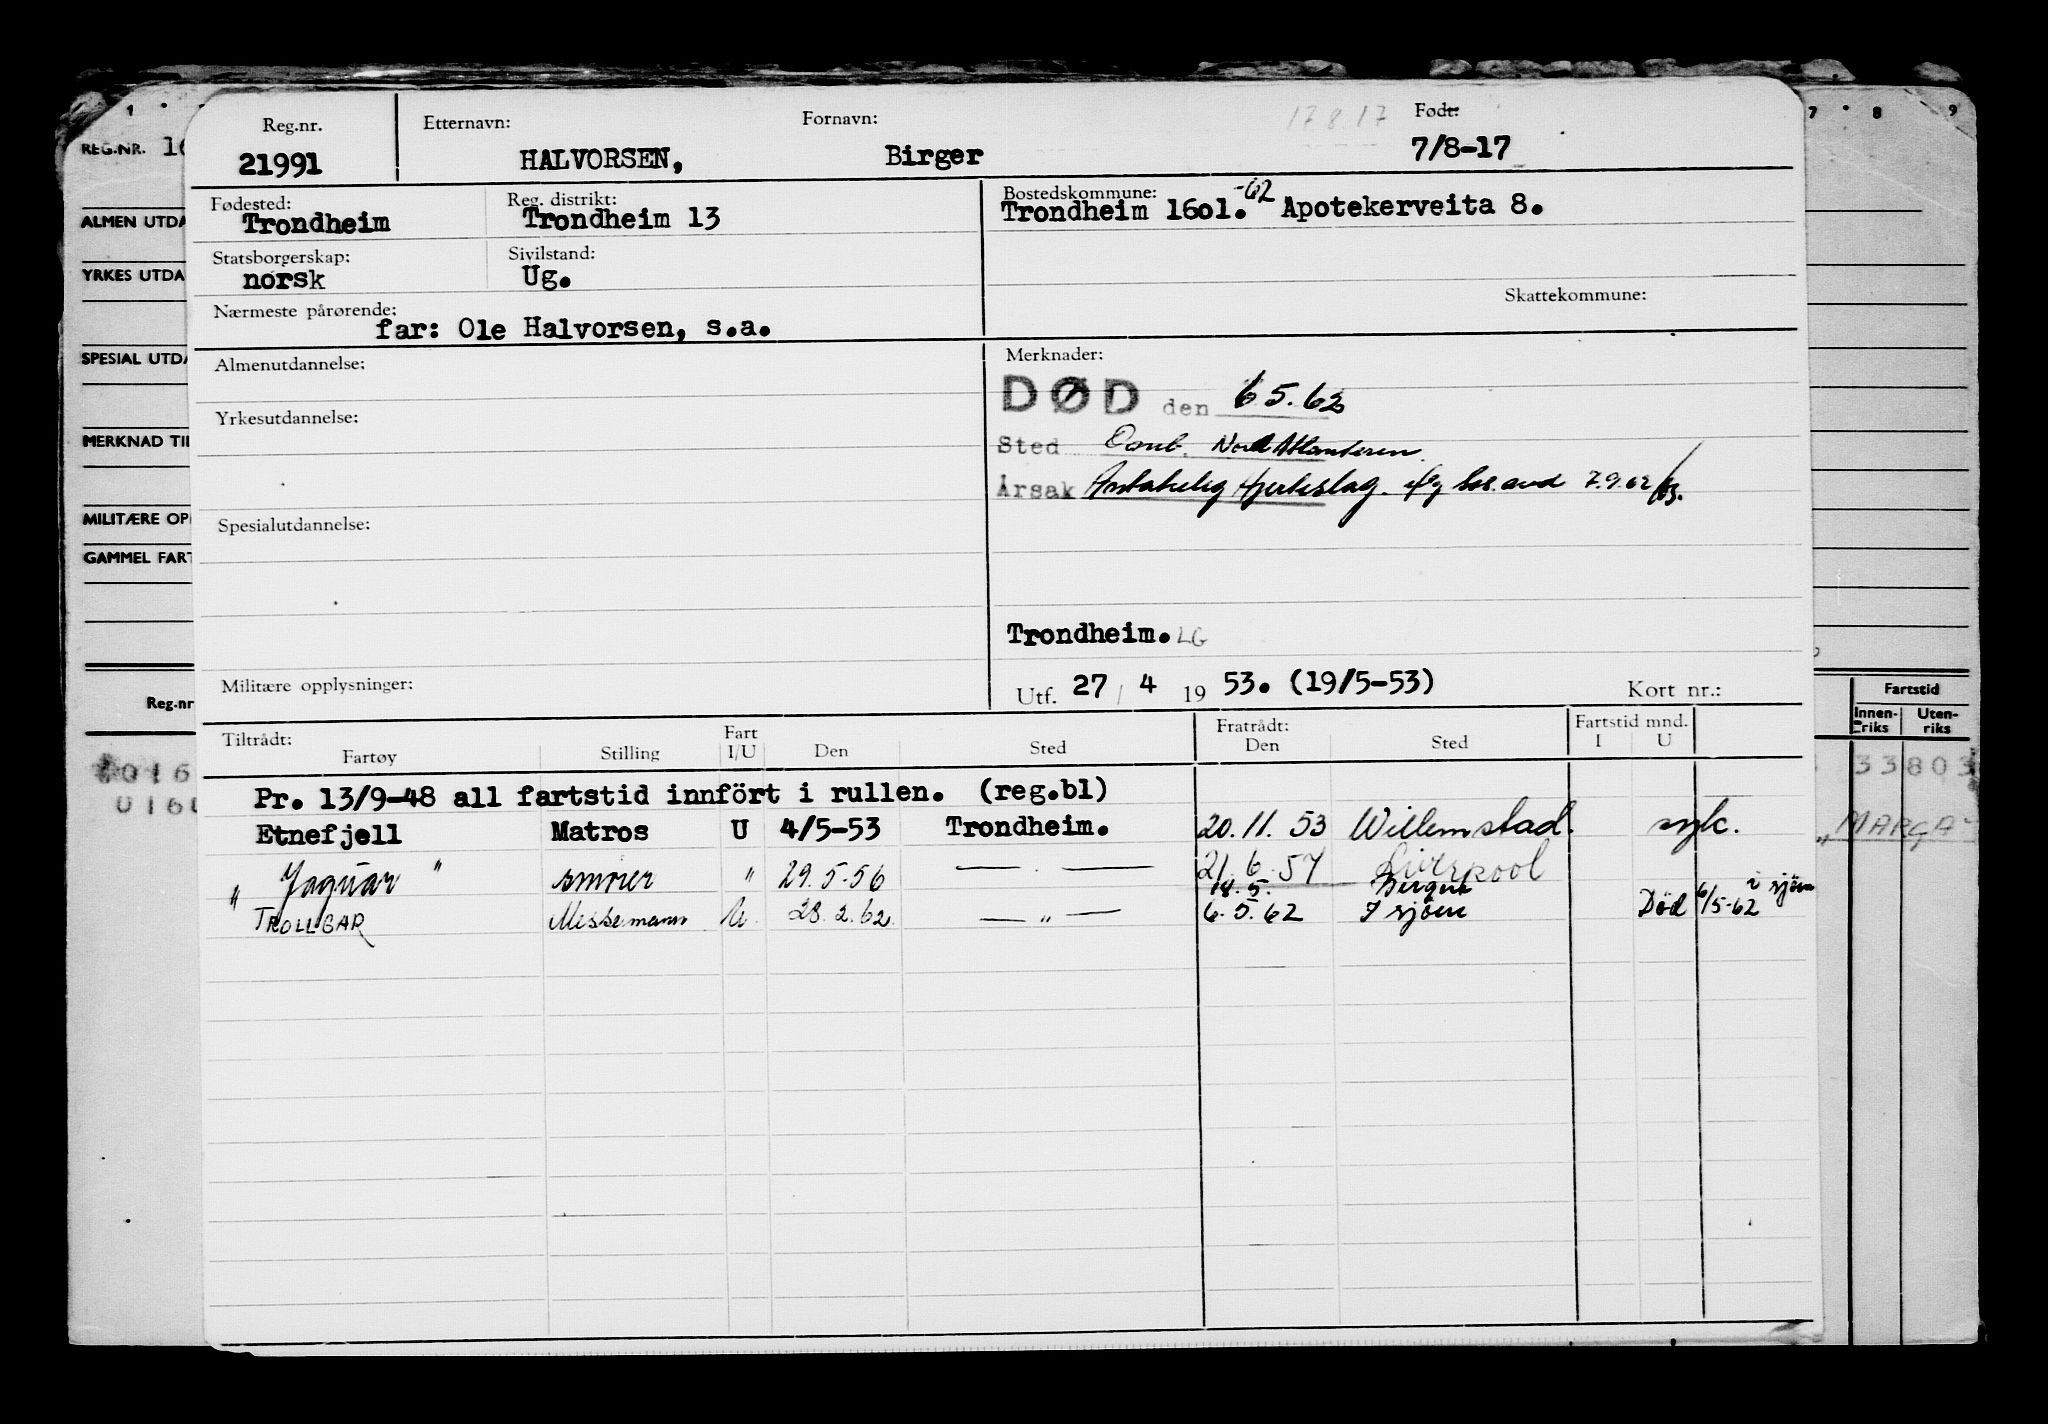 Reg.nr. Etternavn: Fornavn: 17.8.17 Født:
21991 HALVORSEN, Birger 7/8-17
Fødested: Reg. distrikt: Bostedskommune: -62
Trondheim Trondheim 13 Trondheim 16ol. Apotekerveita 8.
Statsborgerskap: Sivilstand:
norsk Ug.
Skattekommune:
Nærmeste pårørende:
far: Ole Halvorsen, s.a.
Almenutdannelse:
Yrkesutdannelse:
Spesialutdannelse:
Militære opplysninger:
Merknader:
DØD den 6.5.62
Sted Nord Atlanteren.
Årsak Antakelig hjerteslag. 7.9.62
Trondheim. LG
Utf. 27 / 4 19 53. (19/5-53) Kort nr.:
Tiltrådt: Fart Fratrådt: Fartstid mnd.
Fartøy Stilling I/U Den Sted Den Sted I U
Pr. 13/9-48 all fartstid innfört i rullen. (reg.bl)
Etnefjell Matros U 4/5-53 Trondheim. 20.11.53 Willemstad. syk.
" Jaguar " smører " 29.5.56 — . — 21.6.57 Liverpool
18.5. Bergen
TROLLGAR Messemann U. 28.2.62 — " — 6.5.62 I sjöen Død 6/5-62 i sjöen
1 7 8 9
REG.NR. 16
ALMEN UTDA
YRKES UTDA
SPESIAL UTDA
MERKNAD TIL
MILITÆRE OP
GAMMEL FART
Reg.nr
016
016
Fartstid
Innen-riks Uten-riks
33803
"MARGA